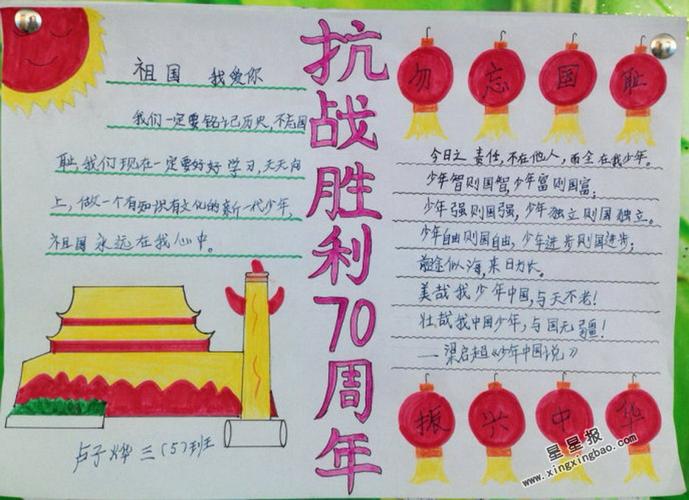 祖国 我爱你
我们一定要铭记历史,不忘国
耻,我们现在一定要好好学习,天天向
上,做一个有知识有文化的新一代少年,
祖国永远在我心中。
卢子烨 三(5)班
抗战胜利70周年
勿忘国耻
今日之责任,不在他人,而全在我少年。
少年智则国智,少年富则国富;
少年强则国强,少年独立则国独立。
少年自由则国自由,少年进步则国进步;
前途似海,来日方长。
美哉我少年中国,与天不老!
壮哉我中国少年,与国无疆!
——梁启超《少年中国说》
振兴中华
星星报
www.xingxingbao.com